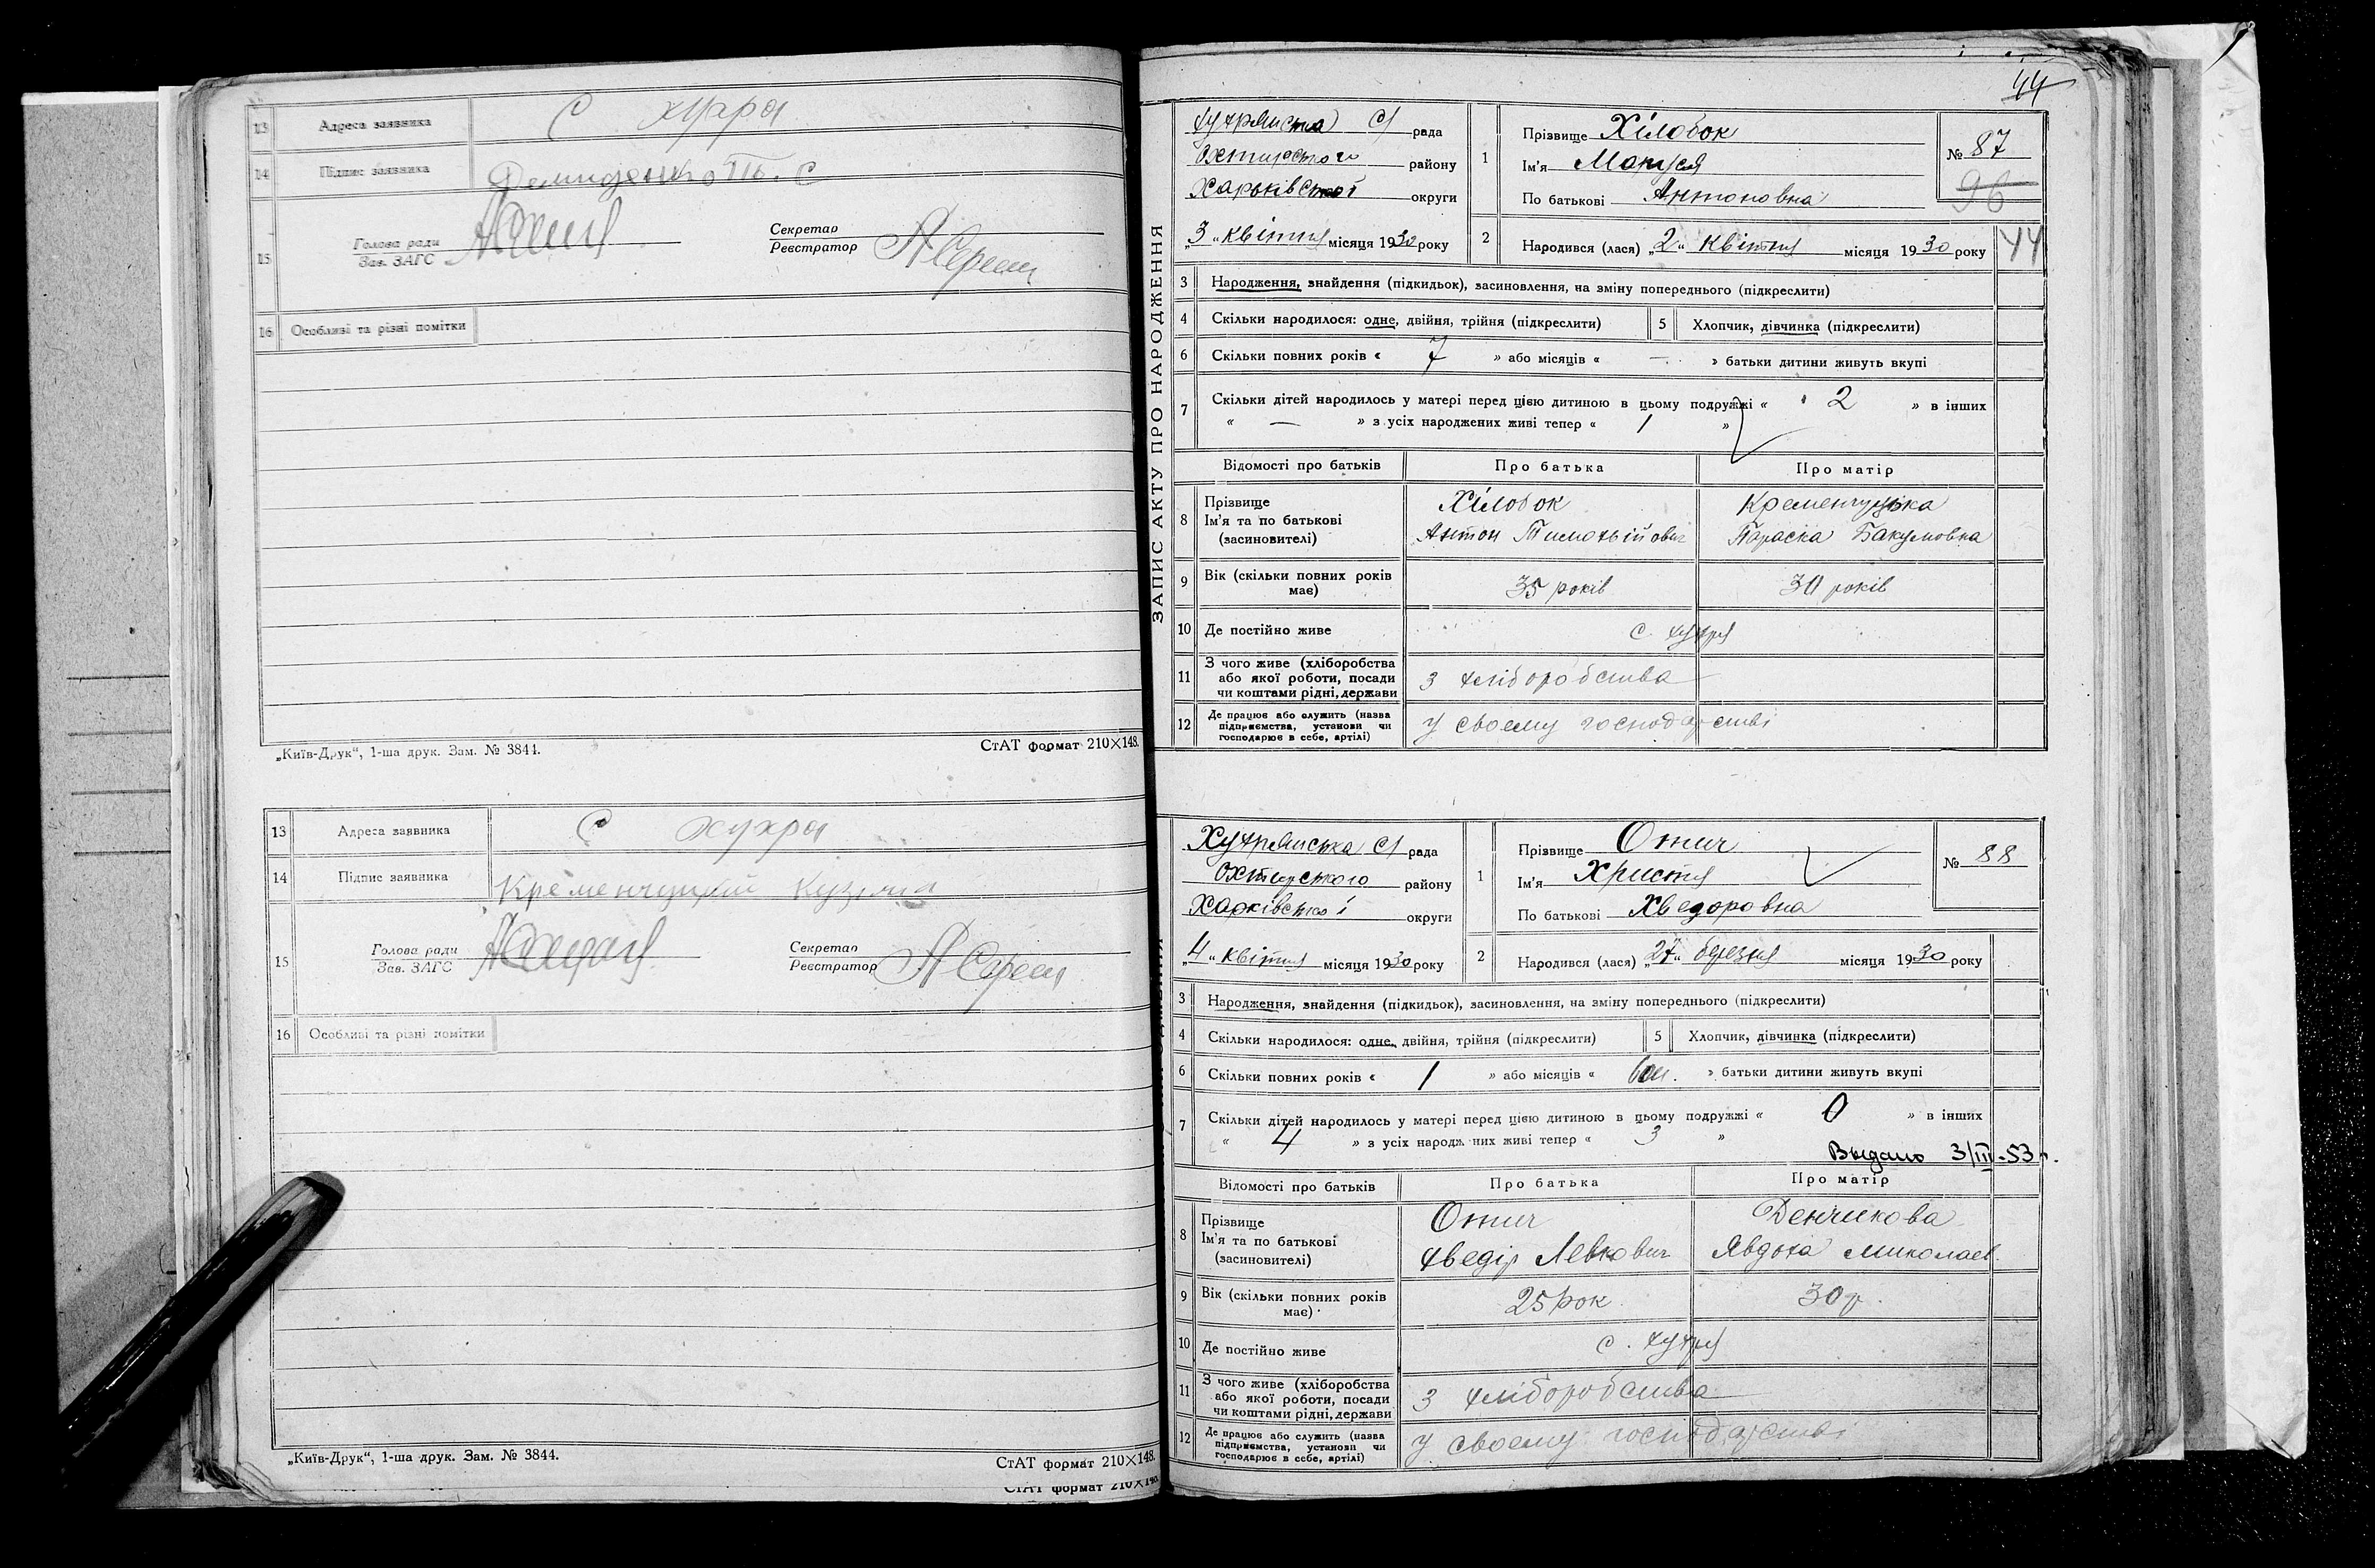 13 Адреса заявника С Хухра
14 Підпис заявника Демиденко Т. С
15 Голова ради
Зав. ЗАГС
Секретар
Реєстратор
16 Особливі та різні помітки
„Київ-Друк“, 1-ша друк. Зам. № 3844.
СтАТ формат 210×148.
13 Адреса заявника С Хухра
14 Підпис заявника Кременчуцкий Кузьма
15 Голова ради
Зав. ЗАГС
Секретар
Реєстратор
16 Особливі та різні помітки
„Київ-Друк“, 1-ша друк. Зам. № 3844.
СтАТ формат 210×148.
СтАТ формат 210×148.
44
ЗАПИС АКТУ ПРО НАРОДЖЕННЯ
Хухрянська С/ рада
Охтирського району
Харьківської округи
„3“ квітня місяця 1930 року
1 Прізвище Хілобок
Ім'я Маруся
По батькові Антоновна
№ 87
96
2 Народився (лася) „2“ квітня місяця 1930 року
44
3 Народження, знайдення (підкидьок), засиновлення, на зміну попереднього (підкреслити)
4 Скільки народилося: одне, двійня, трійня (підкреслити) 5 Хлопчик, дівчинка (підкреслити)
6 Скільки повних років « 7 » або місяців « — » батьки дитини живуть вкупі
7 Скільки дітей народилось у матері перед цією дитиною в цьому подружжі « 2 » в інших
« — » з усіх народжених живі тепер « 1 »
Відомості про батьків Про батька Про матір
8 Прізвище Хілобок Кременчуцька
Ім'я та по батькові Антон Тимохвійович Параска Бакумовна
(засиновителі)
9 Вік (скільки повних років має) 35 років 30 років
10 Де постійно живе с. Хухря
11 З чого живе (хліборобства
або якої роботи, посади
чи коштами рідні, держави З хліборобства
12 Де працює або служить (назва
підприємства, установи чи
господарює в себе, артілі) У своему господарстві
Хухрянська С/ рада
Охтирського району
Харківської округи
„4“ квітня місяця 1930 року
1 Прізвище Отич
Ім'я Христя
По батькові Хведоровна
№ 88
2 Народився (лася) „27“ березня місяця 1930 року
3 Народження, знайдення (підкидьок), засиновлення, на зміну попереднього (підкреслити)
4 Скільки народилося: одне, двійня, трійня (підкреслити) 5 Хлопчик, дівчинка (підкреслити)
6 Скільки повних років « 1 » або місяців « 6 м. » батьки дитини живуть вкупі
7 Скільки дітей народилось у матері перед цією дитиною в цьому подружжі « 0 » в інших
« 4 » з усіх народж них живі тепер « 3 »
Выдано 3/III-53 г.
Відомості про батьків Про батька Про матір
8 Прізвище Отич Денчикова
Ім'я та по батькові Хведір Левкович Явдоха Миколаєв
(засиновителі)
9 Вік (скільки повних років має) 25 рок 30 р.
10 Де постійно живе с. Хухря
11 З чого живе (хліборобства
або якої роботи, посади
чи коштами рідні, держави З хліборобства
12 Де працює або служить (назва
підприємства, установи чи
господарює в себе, артілі) У своему господарстві